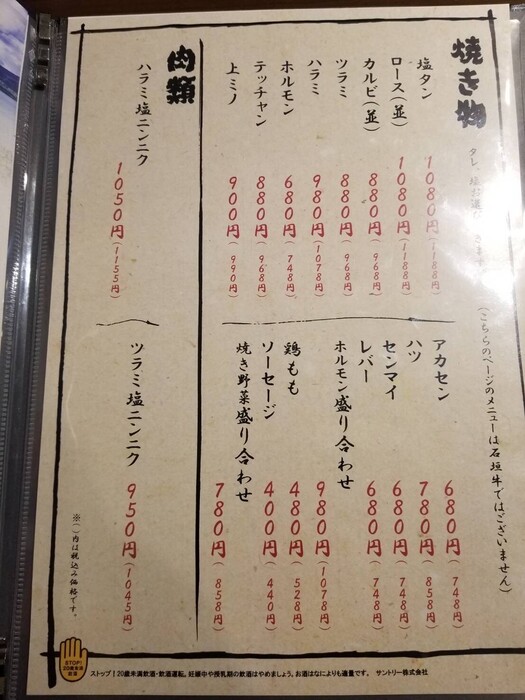 焼き物
タレ、塩お選び
(こちらのページのメニューは石垣牛ではございません)
塩タン 1080円(1188円)
ロース(並) 1080円(1188円)
カルビ(並) 880円(968円)
ツラミ 880円(968円)
ハラミ 980円(1078円)
ホルモン 680円(748円)
テッチャン 880円(968円)
上ミノ 900円(990円)
アカセン 680円(748円)
ハツ 780円(858円)
センマイ 680円(748円)
レバー 680円(748円)
ホルモン盛り合わせ 980円(1078円)
鶏もも 480円(528円)
ソーセージ 400円(440円)
焼き野菜盛り合わせ 780円(858円)
肉類
ハラミ塩ニンニク 1050円(1155円)
ツラミ塩ニンニク 950円(1045円)
※()内は税込み価格です。
STOP!
20歳未満
飲酒
ストップ!20歳未満飲酒・飲酒運転。妊娠中や授乳期の飲酒はやめましょう。お酒はなによりも適量です。 サントリー株式会社